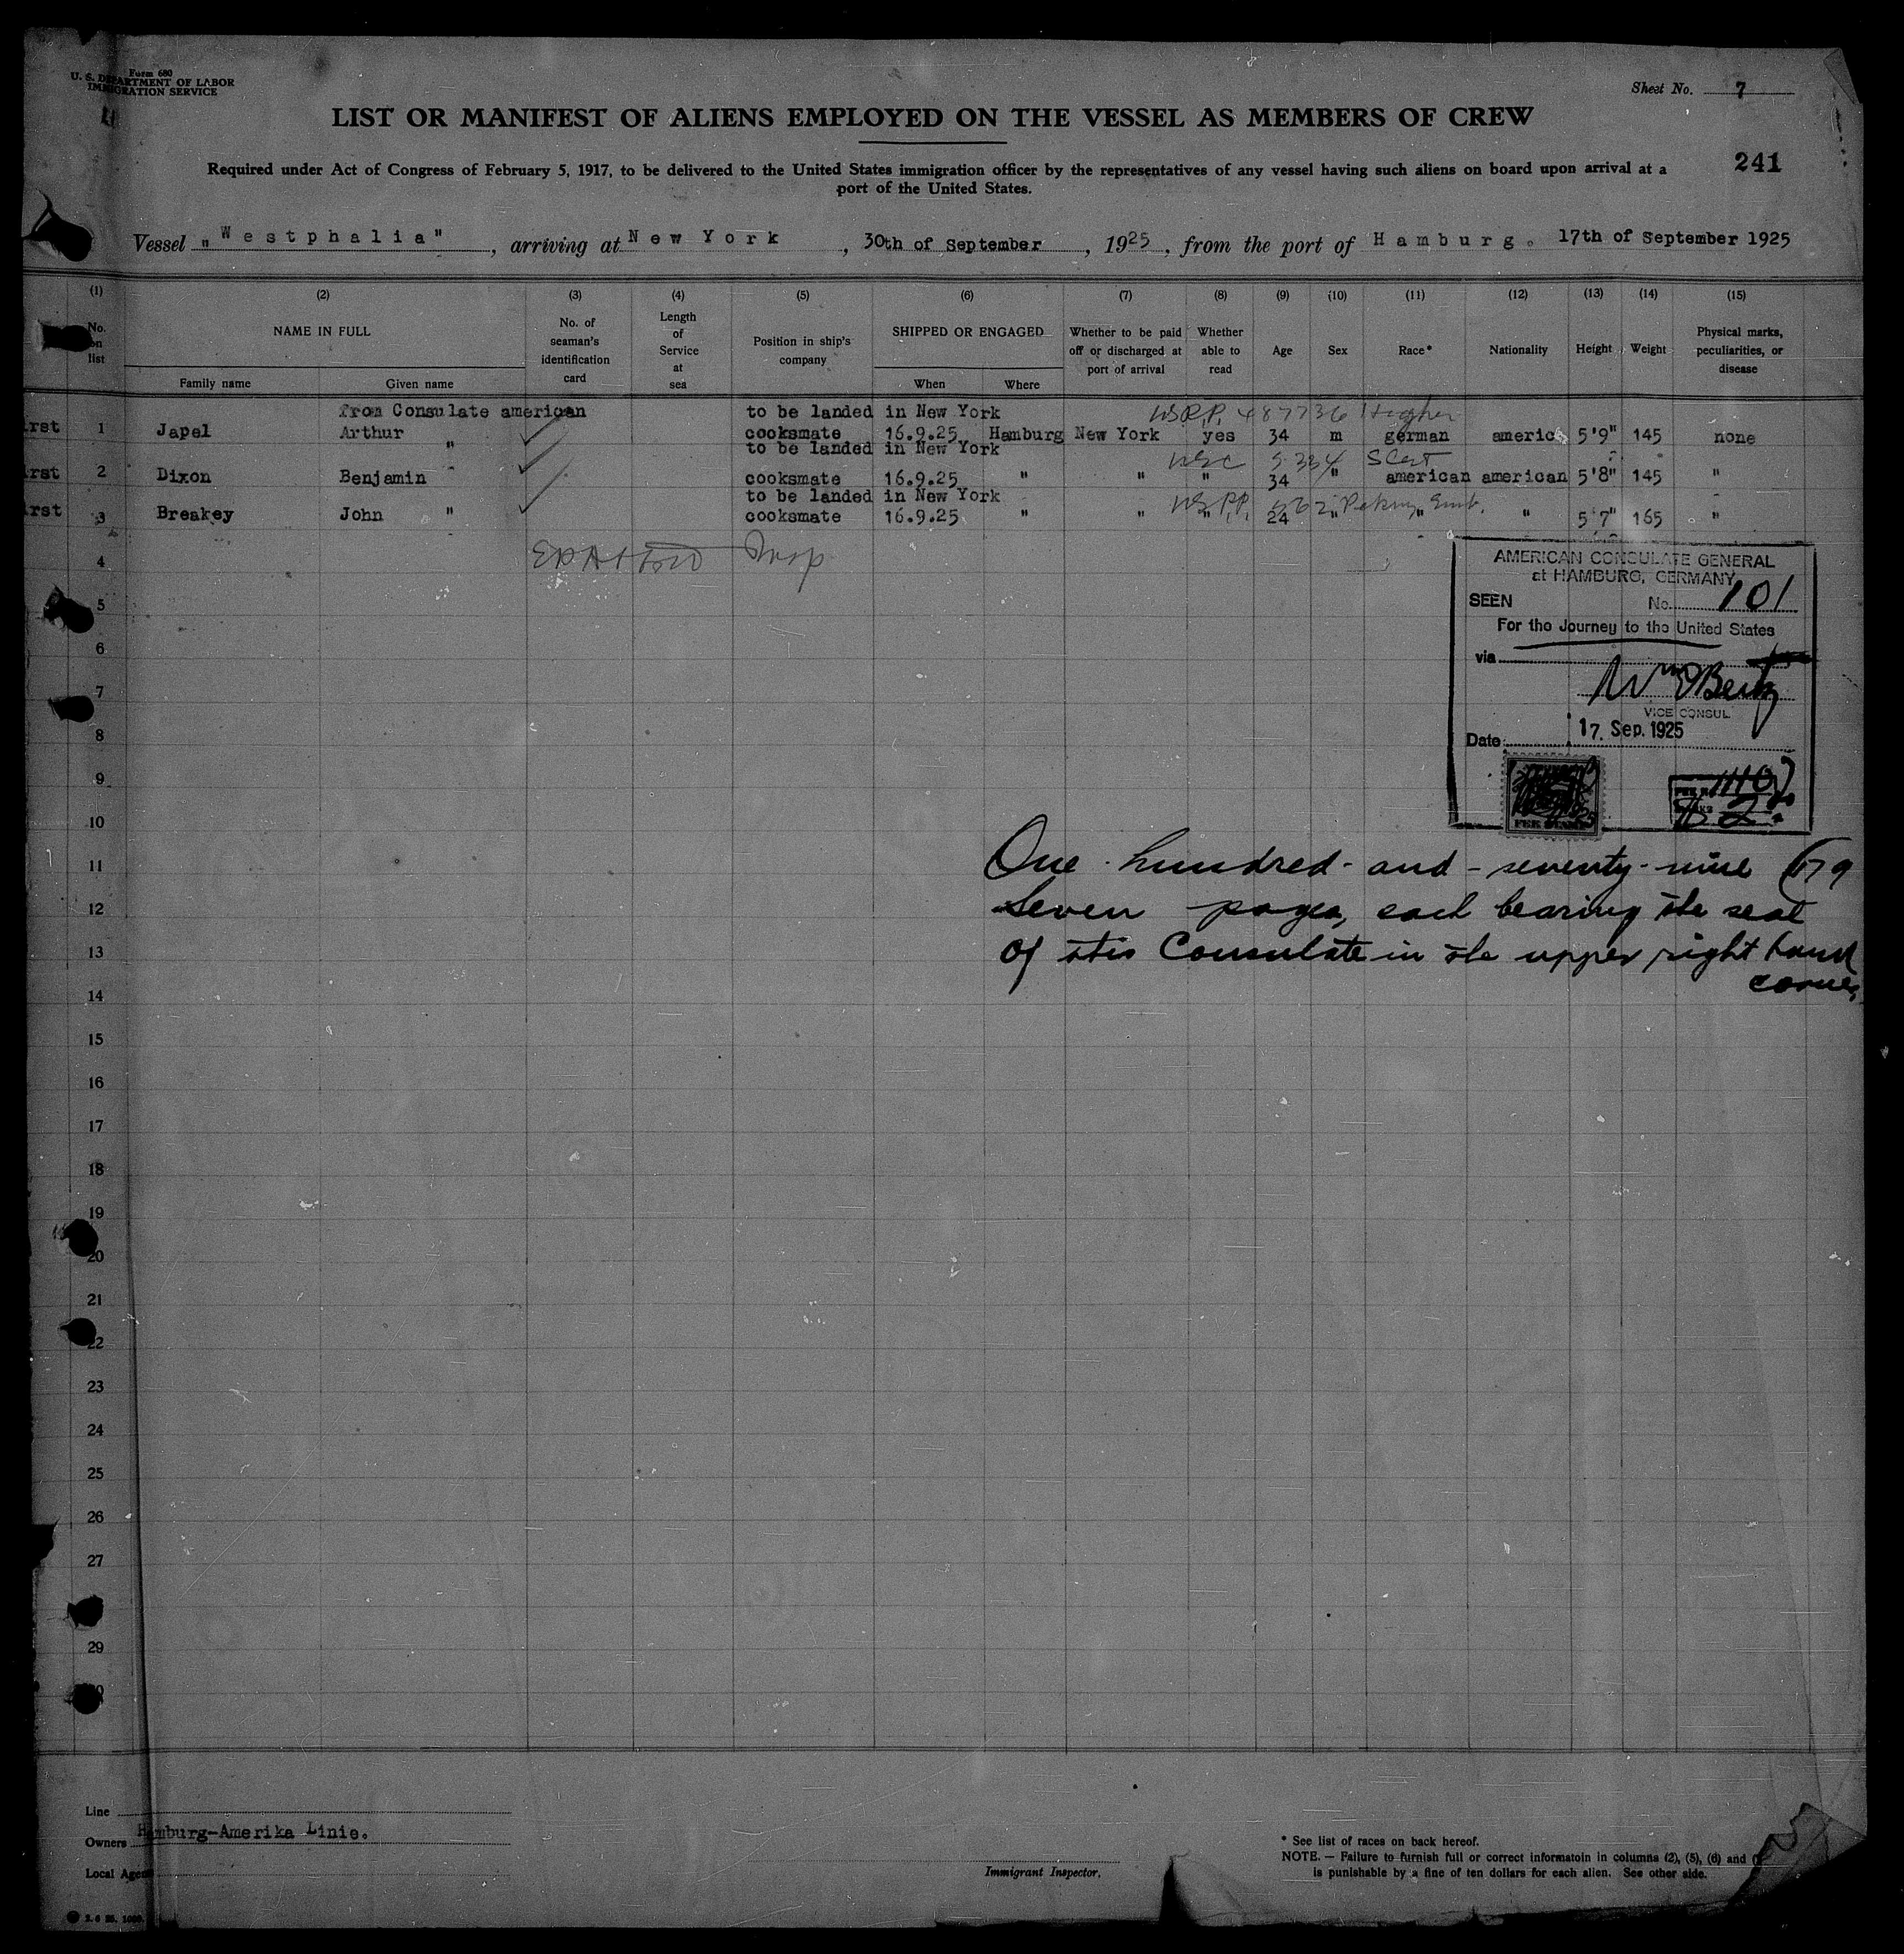 Form 680
U. S. DEPARTMENT OF LABOR
IMMIGRATION SERVICE
Sheet No. 7
LIST OR MANIFEST OF ALIENS EMPLOYED ON THE VESSEL AS MEMBERS OF CREW
241
Required under Act of Congress of February 5, 1917, to be delivered to the United States immigration officer by the representatives of any vessel having such aliens on board upon arrival at a
port of the United States.
Vessel „Westphalia", arriving at New York, 30th of September, 1925, from the port of Hamburg. 17th of September 1925
(1) (2) (3) (4) (5) (6) (7) (8) (9) (10) (11) (12) (13) (14) (15)
No. on list
NAME IN FULL
Family name Given name
No. of seaman's identification card
Length of Service at sea
Position in ship's company
SHIPPED OR ENGAGED
When Where
Whether to be paid off or discharged at port of arrival
Whether able to read
Age
Sex
Race*
Nationality
Height
Weight
Physical marks, peculiarities, or disease
from Consulate american to be landed in New York 487736
rst 1 Japel Arthur cooksmate 16.9.25 Hamburg New York yes 34 m german americ 5'9" 145 none
" to be landed in New York
rst 2 Dixon Benjamin cooksmate 16.9.25 " " " 34 " american american 5'8" 145 "
" to be landed in New York
rst 3 Breakey John cooksmate 16.9.25 " " " 24 " " " 5'7" 165 "
4
AMERICAN CONSULATE GENERAL
at HAMBURG, GERMANY
SEEN No. 101
For the Journey to the United States
via
VICE CONSUL
Date 17. Sep. 1925
5
6
7
8
9
10
One hundred-and-seventy-nine (179
Seven pages, each bearing the seal
of this Consulate in the upper right hand
corner
11
12
13
14
15
16
17
18
19
20
21
22
23
24
25
26
27
29
Line
Owners Hamburg-Amerika Linie.
Local Agen
Immigrant Inspector.
* See list of races on back hereof.
NOTE. — Failure to furnish full or correct informatoin in columns (2), (5), (6) and
is punishable by a fine of ten dollars for each alien. See other side.